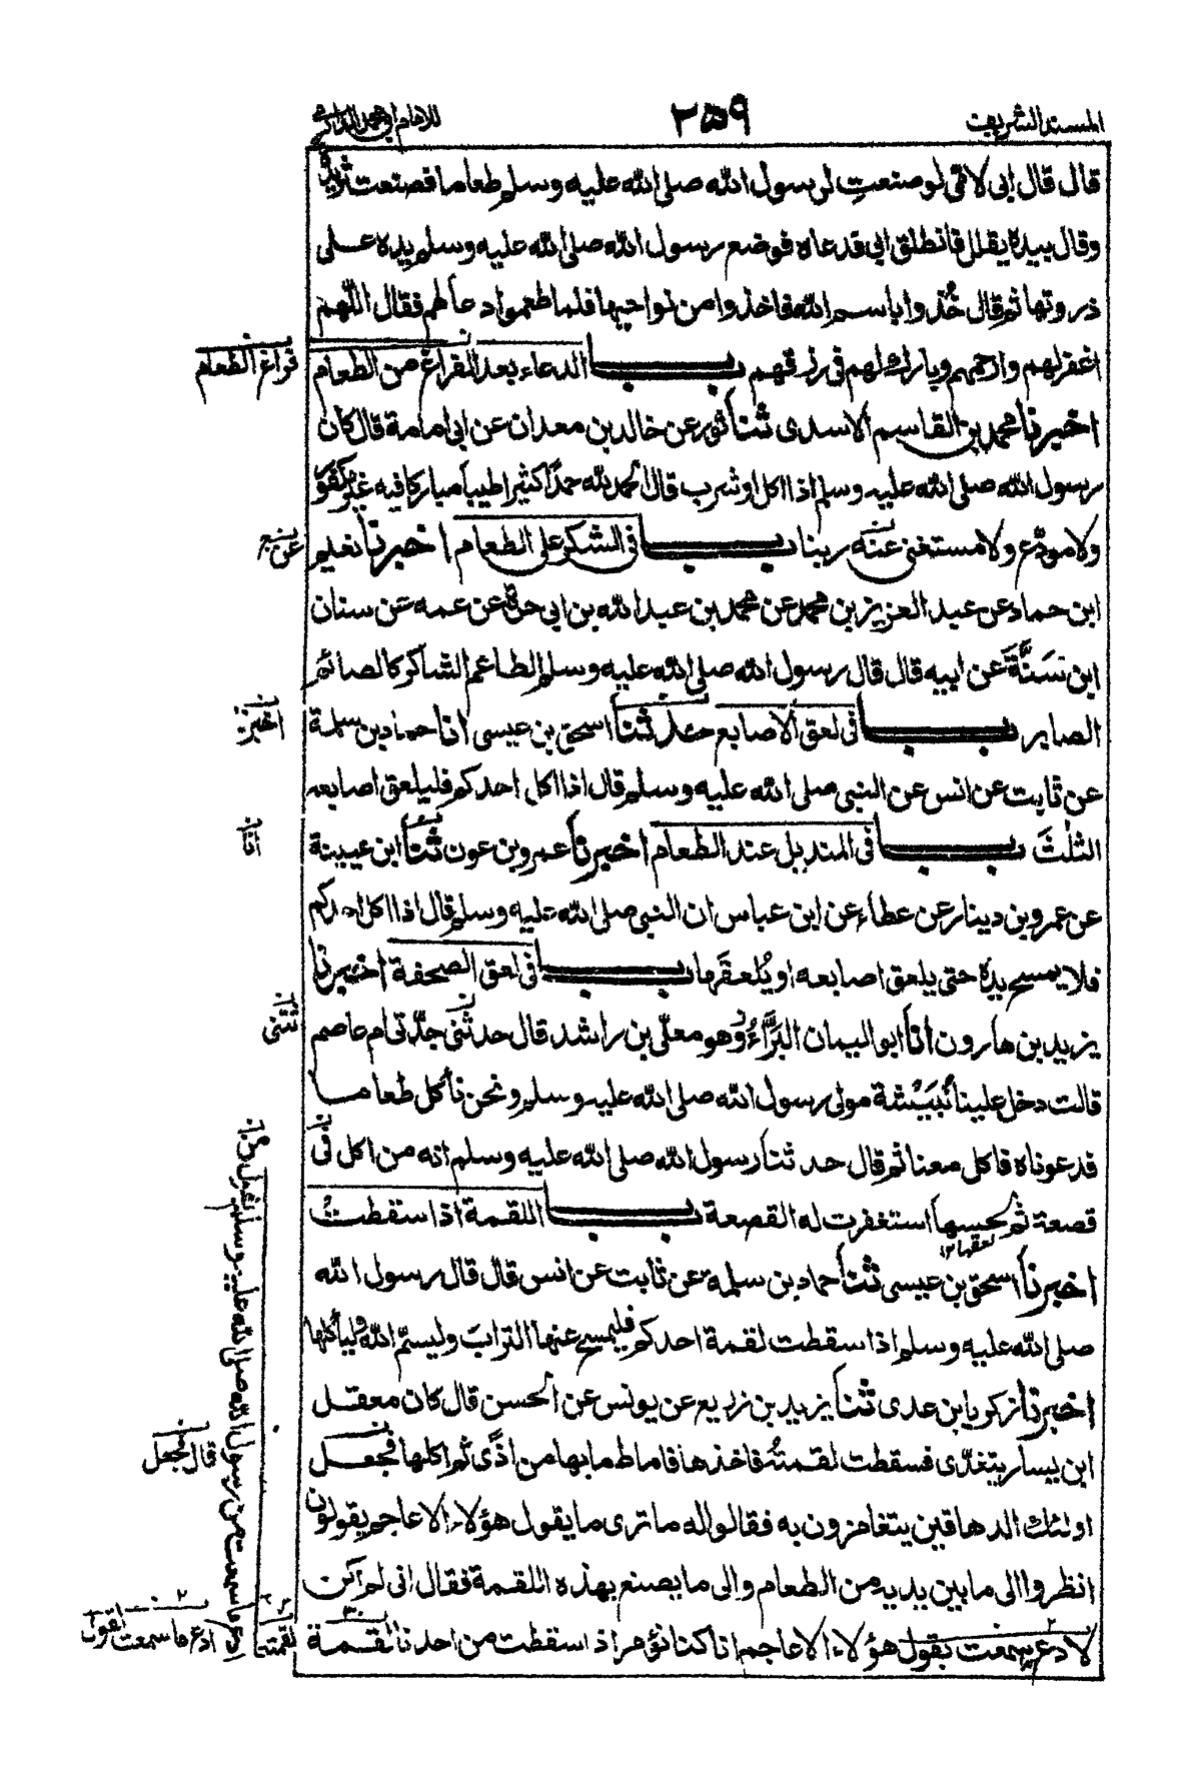 المسند الشريف
٢٥٩
للامام ابى محمد الدارمى
قال قال ابى لامى لو صنعتِ لرسول الله صلى الله عليه وسلم طعاما فصنعت ثريدة
وقال بيده يقلل فانطلق ابى فدعاه فوضع رسول الله صلى الله عليه وسلم يده على
ذروتها ثم قال خُذوا باسم الله فاخذوا من نواحيها فلما طعموا دعا لهم فقال اللهم
اغفر لهم وارحمهم وبارك لهم فى رزقهم بـــاب الدعاء بعد الفراغ من الطعام
فراغ الطعام
اخبرنا محمد بن القاسم الاسدى ثنا ثور عن خالد بن معدان عن ابى امامة قال كان
رسول الله صلى الله عليه وسلم اذا اكل او شرب قال الحمد لله حمدًا كثيرا طيبا مباركا فيه غير مكفور
ولا مودّع ولا مستغنى عنه ربنا بـــاب فى الشكر على الطعام اخبرنا نعيم
ابن حماد عن عبد العزيز بن محمد عن محمد بن عبد الله بن ابى حرة عن عمه عن سنان
ابن سَنَّةَ عن ابيه قال قال رسول الله صلى الله عليه وسلم الطاعم الشاكر كالصائم
الصابر بـــاب فى لعق الاصابع حدثنا اسحق بن عيسى انا حماد بن سلمة
اخبرنا
عن ثابت عن انس عن النبى صلى الله عليه وسلم قال اذا اكل احدكم فليلعق اصابعه
الثلٰثَ بـــاب فى المنديل عند الطعام اخبرنا عمرو بن عون ثنا ابن عيينة
انا
عن عمرو بن دينار عن عطاء عن ابن عباس ان النبى صلى الله عليه وسلم قال اذا اكل احدكم
فلا يمسح يده حتى يلعق اصابعه او يُلعقَها بـــاب فى لعق الصحفة اخبرنا
يزيد بن هارون انا ابو اليمان البَرَّاءُ وهو معلّى بن راشد قال حدثنى جدّتى ام عاصم
ثتنى
قالت دخل علينا نُبَيْشة مولى رسول الله صلى الله عليه وسلم ونحن نأكل طعاما
فدعوناه فاكل معنا ثم قال حدثنا رسول الله صلى الله عليه وسلم انه من اكل فى
قصعة ثم لحسها استغفرت له القصعة بـــاب اللقمة اذا سقطت
لعقها ١٢
اخبرنا اسحق بن عيسى ثنا حماد بن سلمة عن ثابت عن انس قال قال رسول الله
صلى الله عليه وسلم اذا سقطت لقمة احدكم فليمسح عنها الترابَ وليسمّ الله وليأكلها
اخبرنا زكريا بن عدى ثنا يزيد بن زريع عن يونس عن الحسن قال كان معقل
ابن يسار يتغدّى فسقطت لقمتهُ فاخذها فاماط ما بها من اذًى ثم اكلها فجعل
قال فجعل
اولئك الدهاقين يتغامزون به فقالوا له ما ترى ما يقول هؤلاء الاعاجم يقولون
انظروا الى ما بين يديه من الطعام والى ما يصنع بهذه اللقمة فقال انى لم اكن
لادع ما سمعت بقول هؤلاء الاعاجم انا كنا نؤمر اذا سقطت من احدنا لقمة
لقمته
ادع ما سمعت من رسول الله صلى الله عليه وسلم
ادع ما سمعت بقول